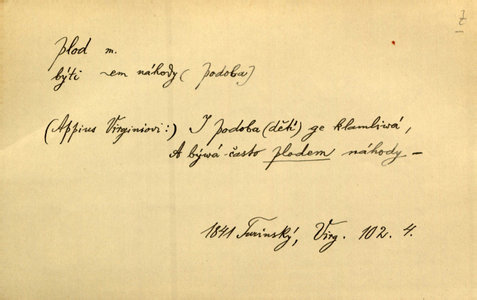 ž
plod m.
býti ~em náhody (podoba)
(Appius Virginiovi:) I podoba (dětí) ge klamliwá,
A býwá často plodem náhody —
1841 Turinský, Virg. 102. 4.